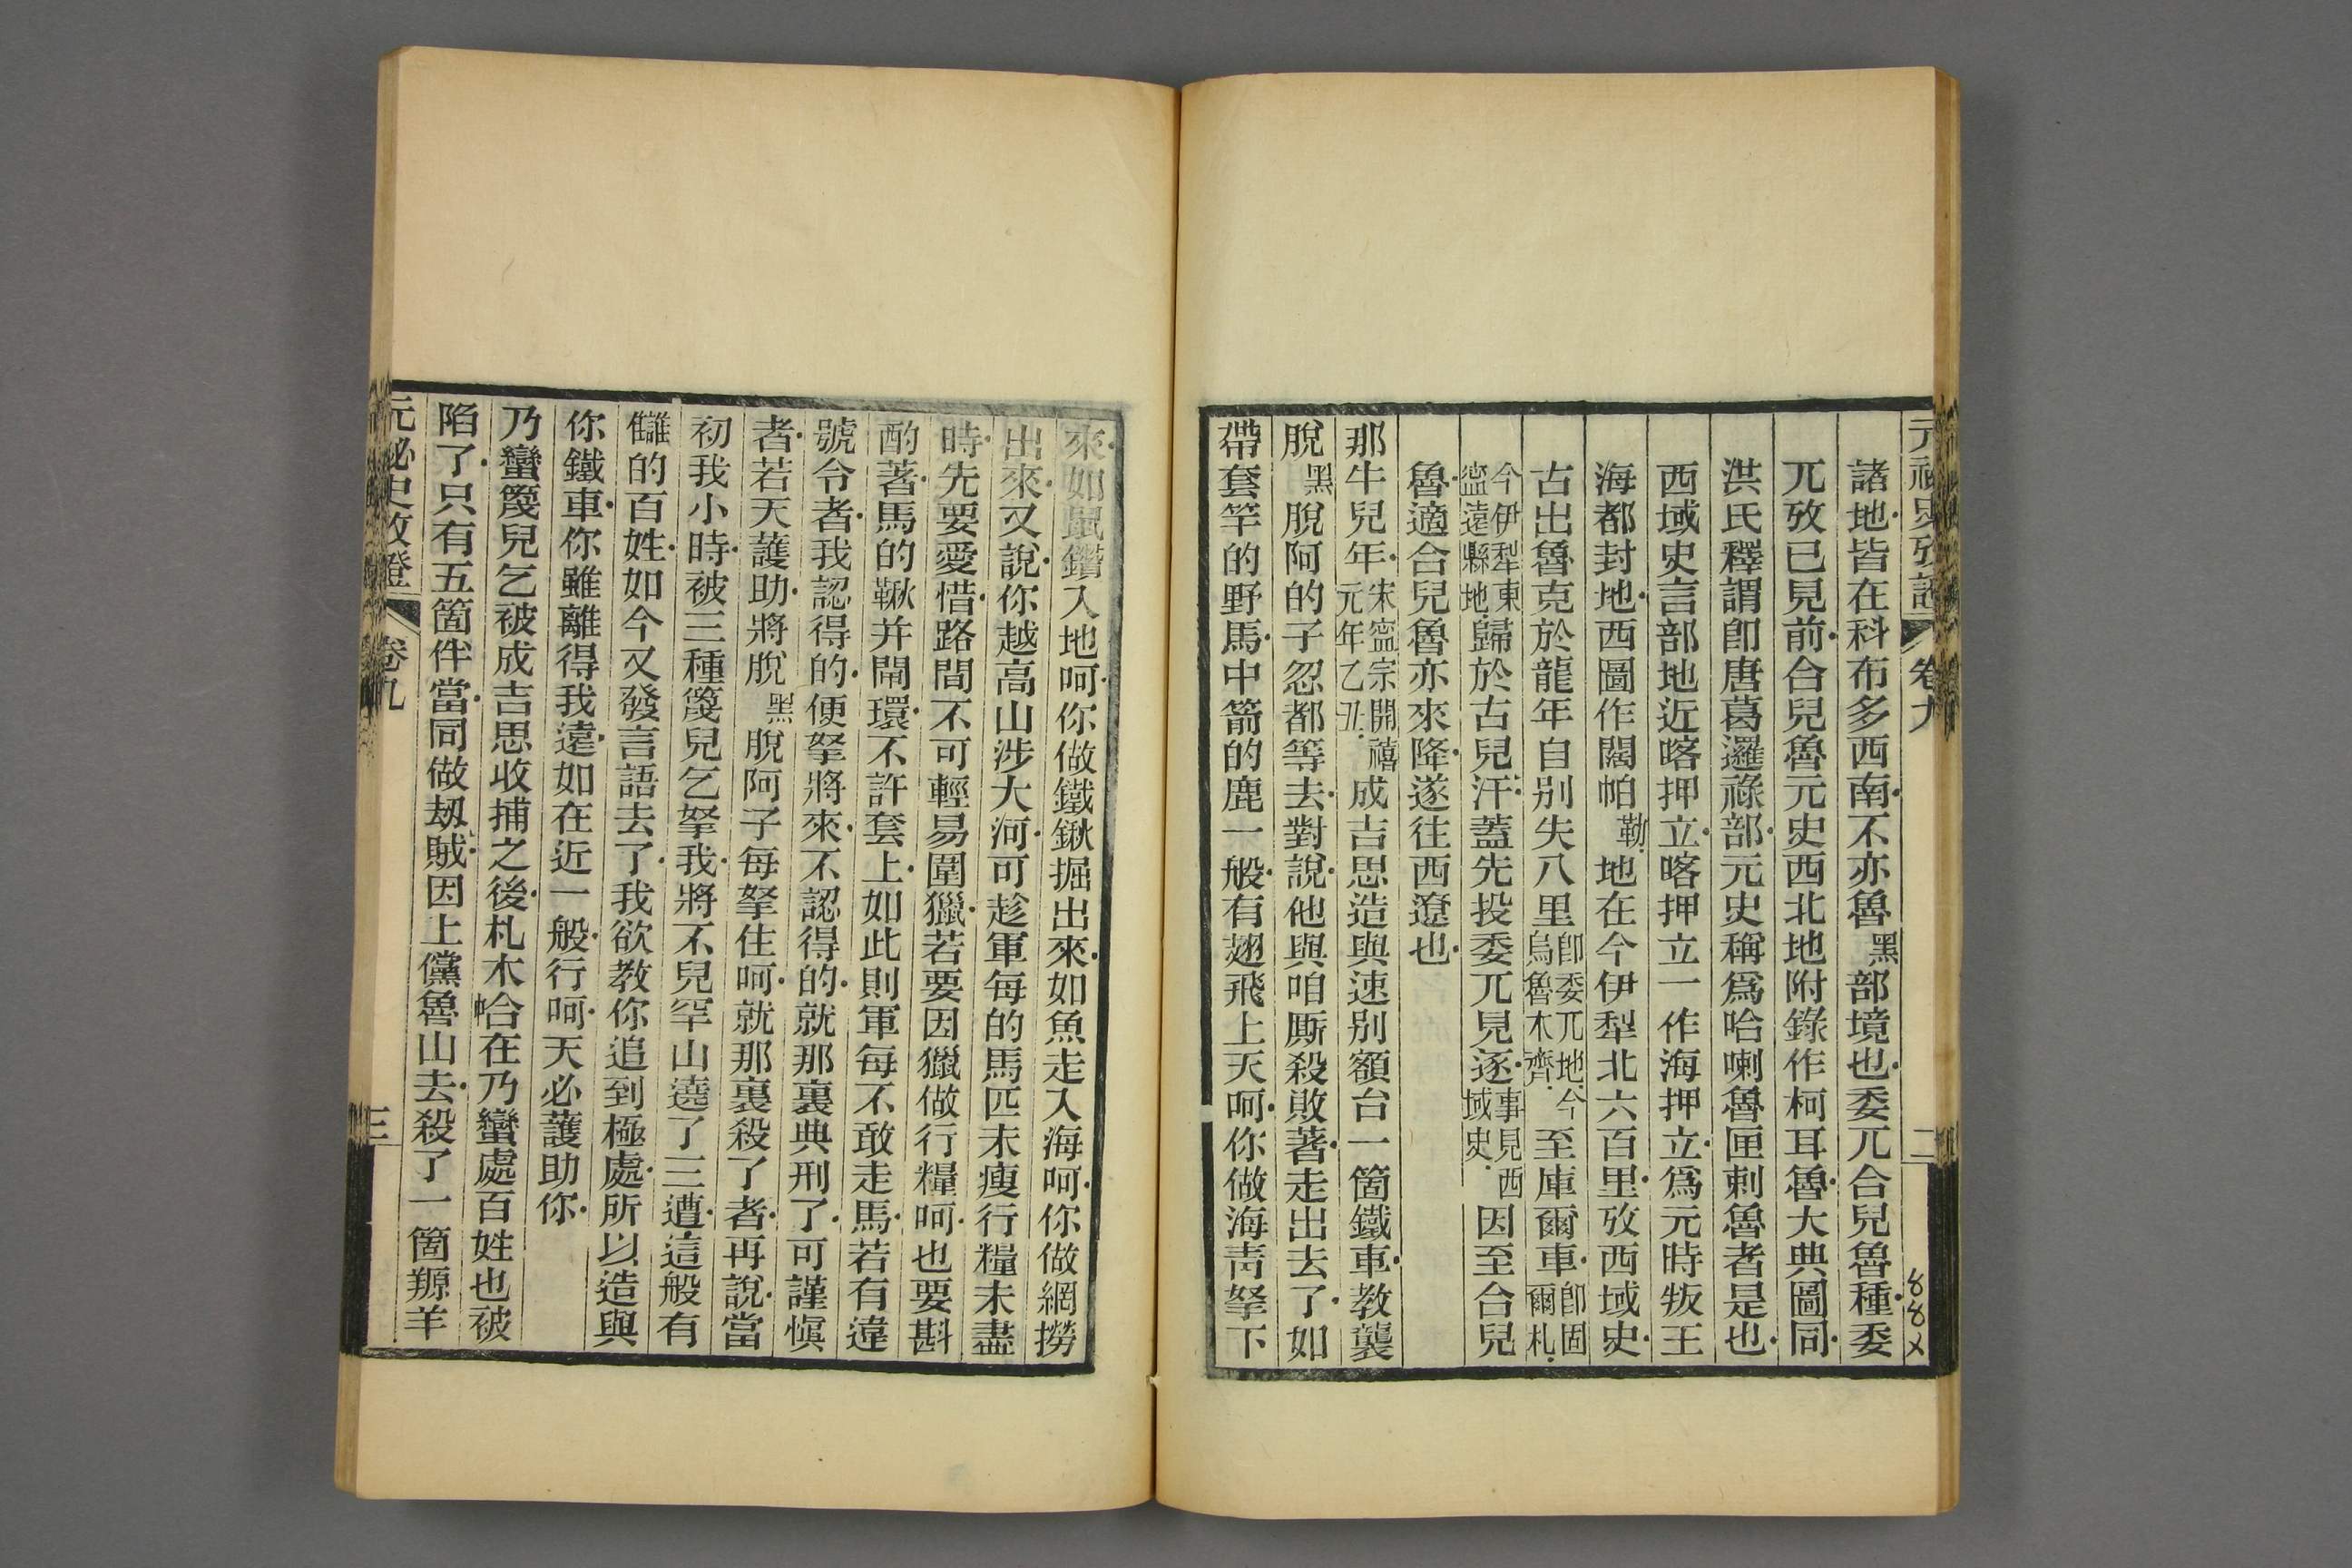 元祕史攷證 卷九 二
諸地皆在科布多西南不亦魯黑部境也委兀合兒魯種委
兀攷已見前合兒魯元史西北地附錄作柯耳魯大典圖同
洪氏釋謂卽唐葛邏祿部元史稱爲哈喇魯匣剌魯者是也
西域史言部地近喀押立喀押立一作海押立爲元時叛王
海都封地西圖作闊帕勒地在今伊犁北六百里攷西域史
古出魯克於龍年自别失八里卽委兀地今烏魯木齊至庫爾車卽固爾札
今伊犁東寍遠縣地歸於古兒汗蓋先投委兀見逐事見西域史因至合兒
魯適合兒魯亦來降遂往西遼也
那牛兒年宋寍宗開禧元年乙丑成吉思造與速别額台一箇鐵車教襲
脫黑脫阿的子忽都等去對說他與咱厮殺敗著走出去了如
帶套竿的野馬中箭的鹿一般有翅飛上天呵你做海青拏下
8 8 乂
來如鼠鑽入地呵你做鐵鍬掘出來如魚走入海呵你做網撈
出來又說你越高山涉大河可趁軍每的馬匹未瘦行糧未盡
時先要愛惜路間不可輕易圍獵若要因獵做行糧呵也要斟
酌著馬的鞦并閘環不許套上如此則軍每不敢走馬若有違
號令者我認得的便拏將來不認得的就那裏典刑了可謹愼
者若天護助將脫黑脫阿子每拏住呵就那裏殺了者再說當
初我小時被三種篾兒乞拏我將不兒罕山遶了三遭這般有
讎的百姓如今又發言語去了我欲教你追到極處所以造與
你鐵車你雖離得我遠如在近一般行呵天必護助你
乃蠻篾兒乞被成吉思收捕之後札木合在乃蠻處百姓也被
陷了只有五箇伴當同做刼賊因上儻魯山去殺了一箇羱羊
元祕史攷證 卷九 三